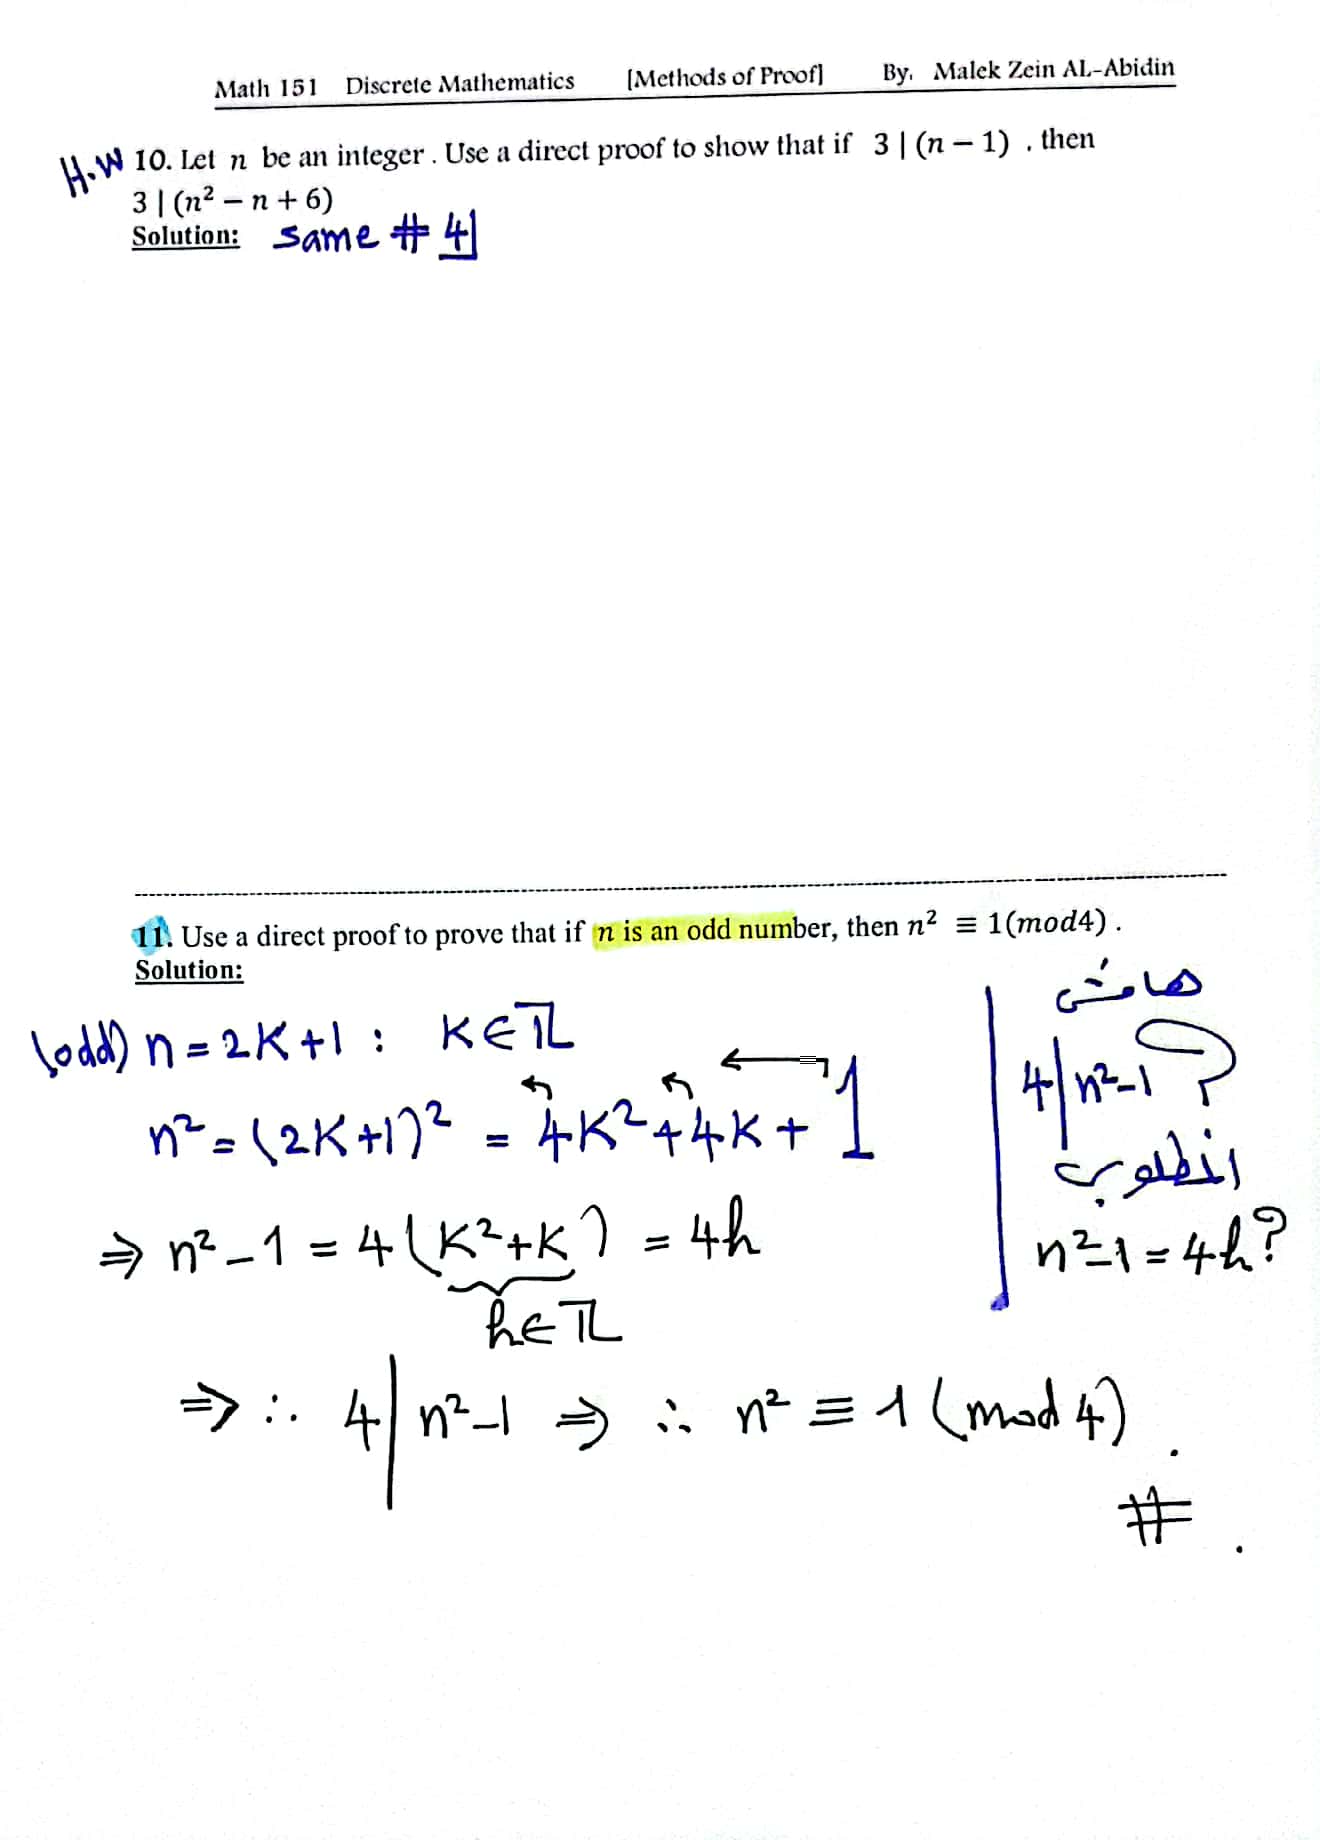 Math 151 Discrete Mathematics [Methods of Proof] By. Malek Zein AL-Abidin
H.W 10. Let n be an integer . Use a direct proof to show that if 3 | (n − 1) , then
3 | (n² − n + 6)
Solution: same # 4
11. Use a direct proof to prove that if n is an odd number, then n² ≡ 1(mod4) .
Solution:
(odd) n = 2K+1 : K∈ℤ
n² = (2K+1)² = 4K² + 4K + 1
⇒ n² − 1 = 4(K²+K) = 4h
h∈ℤ
⇒ ∴ 4 | n²−1 ⇒ ∴ n² ≡ 1 (mod 4).
# .
هامش
4 | n²−1 ?
المطلوب
n²−1 = 4h ?